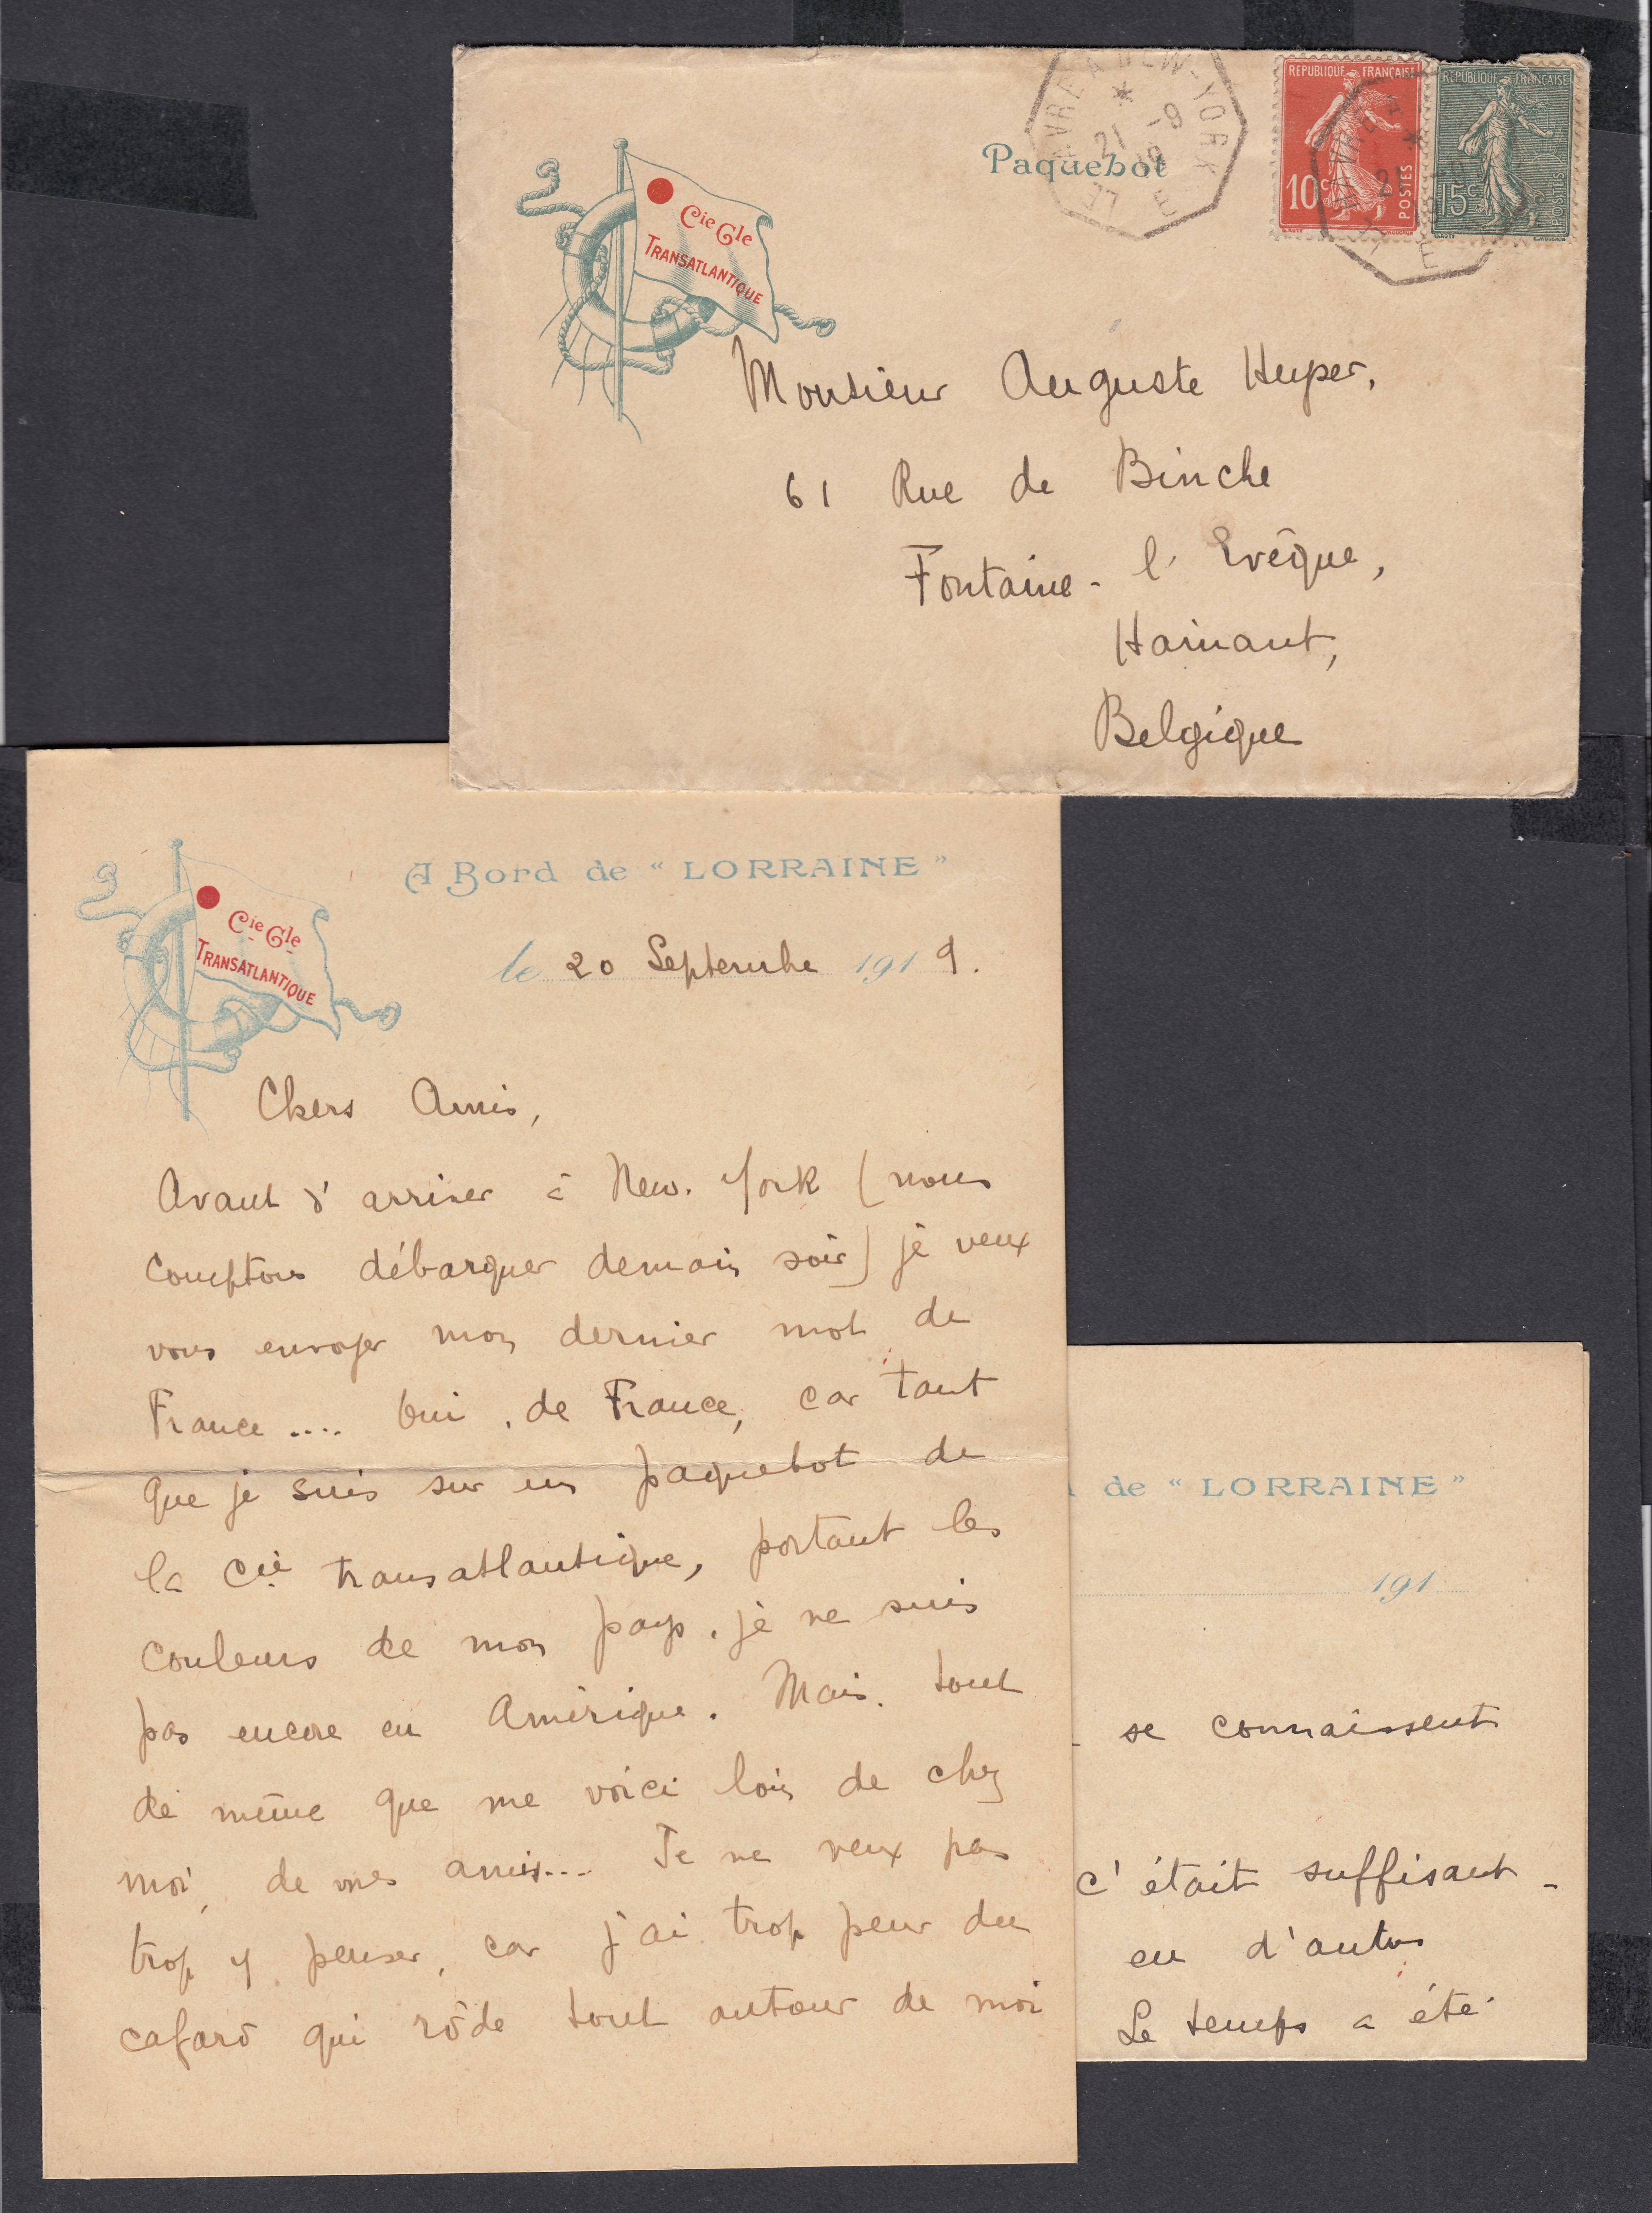 LE HAVRE A NEW-YORK
*
21 -9
19
E
Paquebot
REPUBLIQUE FRANÇAISE
10c
POSTES
REPUBLIQUE FRANÇAISE
15c
POSTES
LE HAVRE A
*
21 -9
E
Cie Gle
TRANSATLANTIQUE
Monsieur Auguste Huper,
61 Rue de Binche
Fontaine-l'Evêque,
Hainaut,
Belgique
Cie Gle
TRANSATLANTIQUE
A Bord de "LORRAINE"
le 20 Septembre 1919.
Chers Amis,
Avant d'arriver à New-York (nous
comptons débarquer demain soir) je veux
vous envoyer mon dernier mot de
France.... Oui, de France, car tant
que je suis sur un paquebot de
la Cie transatlantique, portant les
couleurs de mon pays, je ne suis
pas encore en Amérique. Mais, tout
de même que me voici loin de chez
moi, de mes amis.... Je ne veux pas
trop y penser, car j'ai trop peur du
cafard qui rôde tout autour de moi
de "LORRAINE"
191
se connaissent
c'était suffisant -
en d'autres
Le temps a été